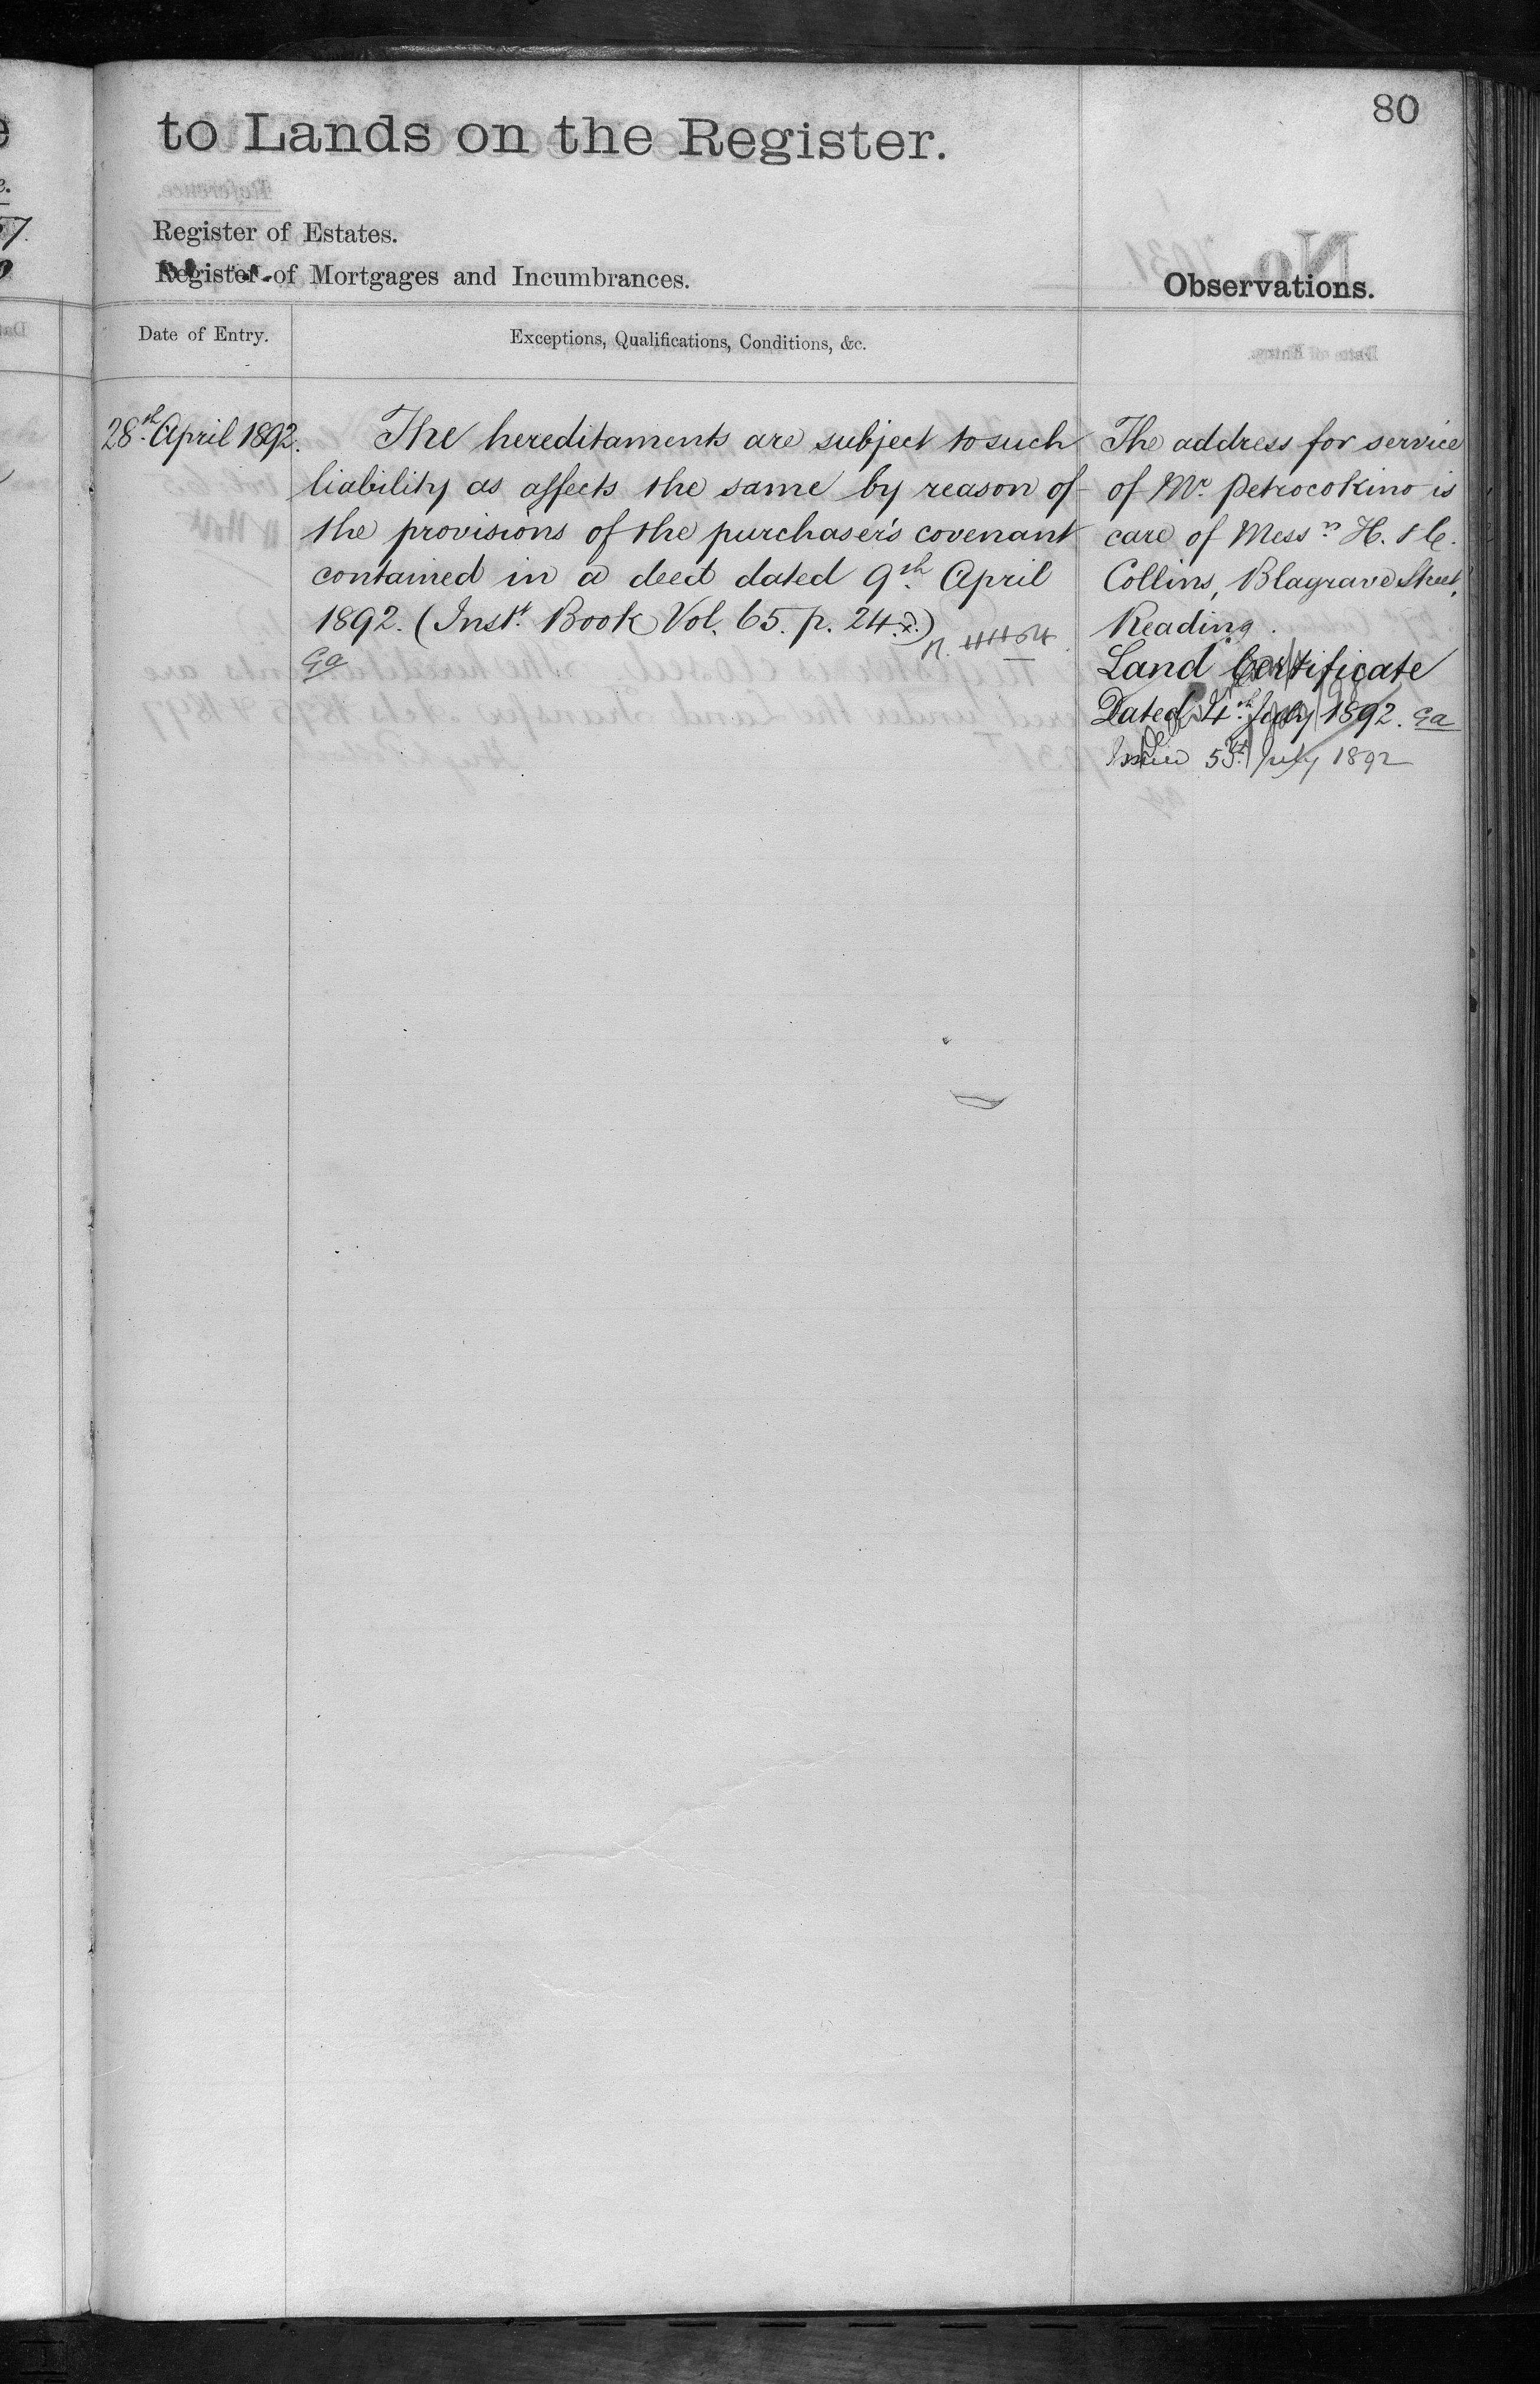 80
to Lands on the Register.
Register of Estates.
Register of Mortgages and Incumbrances.
Observations.
Date of Entry.
Exceptions, Qualifications, Conditions, &c.
28th April 1892.
The hereditaments are subject to such
liability as affects the same by reason of
the provisions of the purchaser's covenant
contained in a deed dated 9th April
1892. (Inst. Book Vol. 65. p. 24.)
Ga
The address for service
of Mr. Petrocokino is
care of Messrs H. & C.
Collins, Blagrave Street,
Reading.
Land Certificate
Dated 4th July 1892. Ga
Issued 5th July 1892